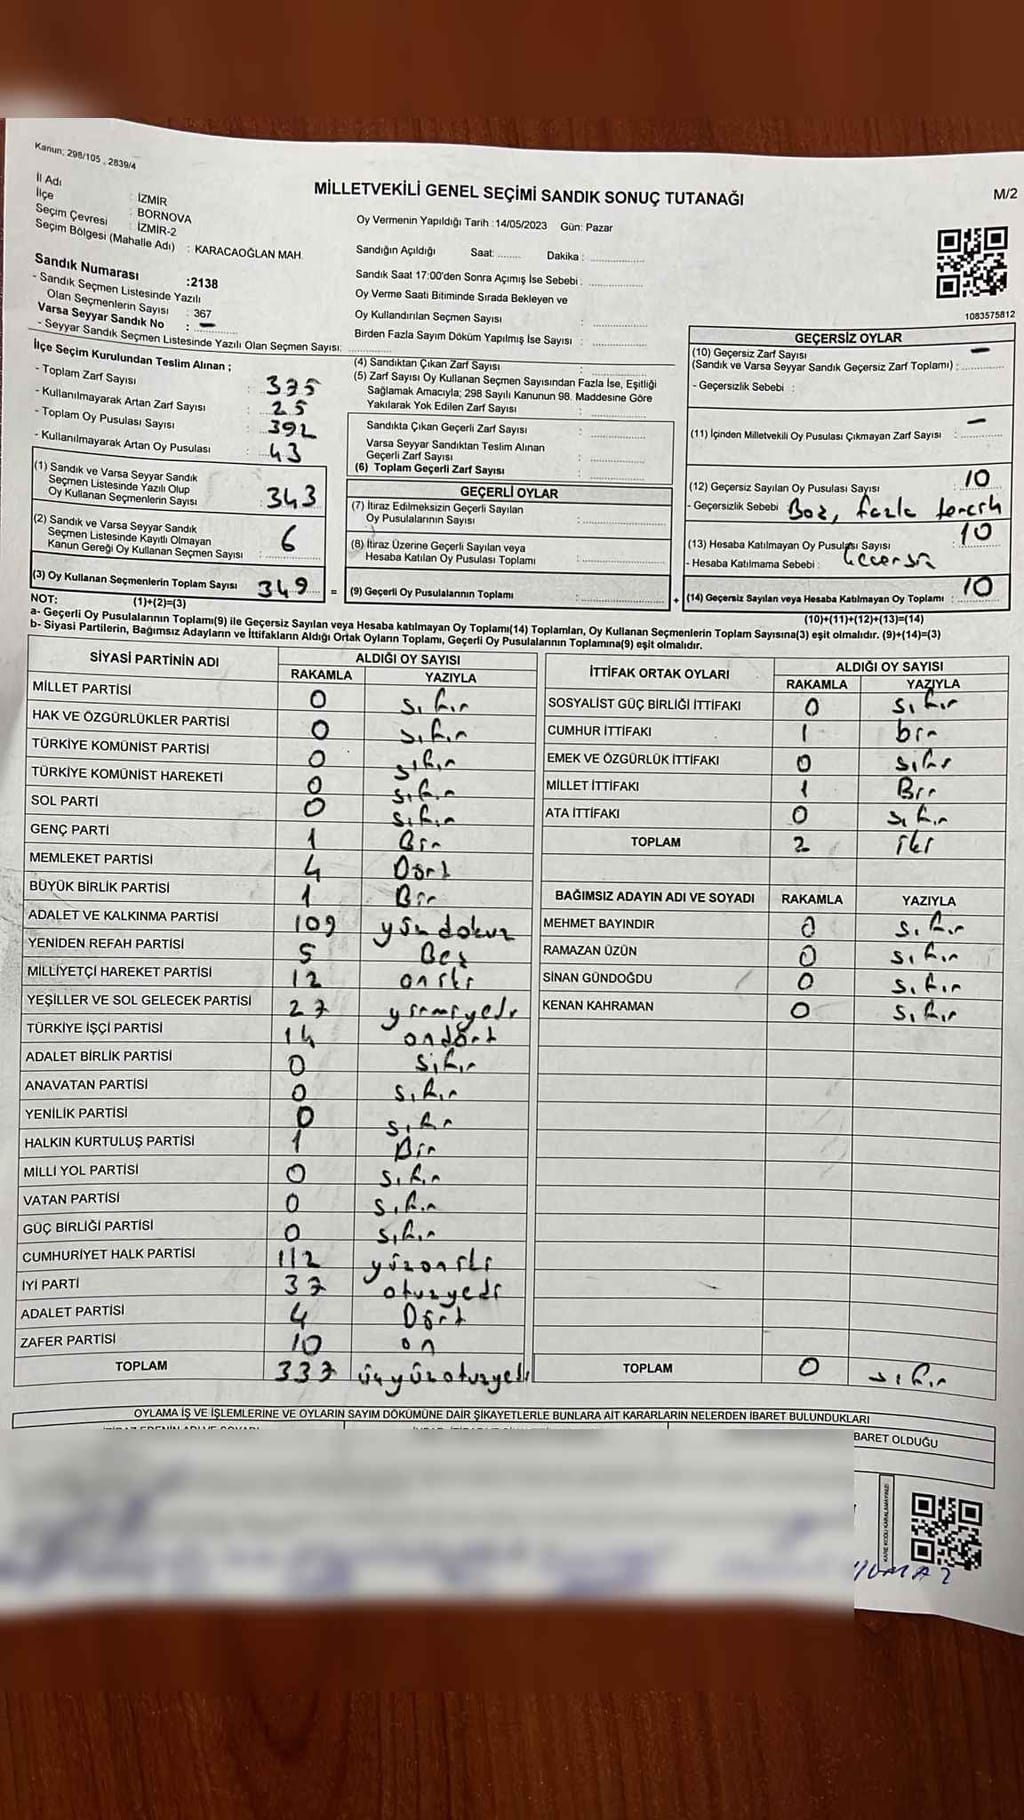 Kanun: 298/105 , 2839/4
MİLLETVEKİLİ GENEL SEÇİMİ SANDIK SONUÇ TUTANAĞI
M/2
İl Adı : İZMİR
İlçe : BORNOVA
Seçim Çevresi : İZMİR-2
Seçim Bölgesi (Mahalle Adı) : KARACAOĞLAN MAH.
Sandık Numarası :2138
- Sandık Seçmen Listesinde Yazılı
Olan Seçmenlerin Sayısı : 367
Varsa Seyyar Sandık No : —
- Seyyar Sandık Seçmen Listesinde Yazılı Olan Seçmen Sayısı:
Oy Vermenin Yapıldığı Tarih :14/05/2023 Gün: Pazar
Sandığın Açıldığı Saat: Dakika :
Sandık Saat 17:00'den Sonra Açımış İse Sebebi :
Oy Verme Saati Bitiminde Sırada Bekleyen ve
Oy Kullandırılan Seçmen Sayısı :
Birden Fazla Sayım Döküm Yapılmış İse Sayısı :
1083575812
İlçe Seçim Kurulundan Teslim Alınan ;
- Toplam Zarf Sayısı : 375
- Kullanılmayarak Artan Zarf Sayısı : 25
- Toplam Oy Pusulası Sayısı : 392
- Kullanılmayarak Artan Oy Pusulası : 43
(1) Sandık ve Varsa Seyyar Sandık
Seçmen Listesinde Yazılı Olup
Oy Kullanan Seçmenlerin Sayısı : 343
(2) Sandık ve Varsa Seyyar Sandık
Seçmen Listesinde Kayıtlı Olmayan
Kanun Gereği Oy Kullanan Seçmen Sayısı : 6
(3) Oy Kullanan Seçmenlerin Toplam Sayısı : 349 =
(4) Sandıktan Çıkan Zarf Sayısı :
(5) Zarf Sayısı Oy Kullanan Seçmen Sayısından Fazla İse, Eşitliği
Sağlamak Amacıyla; 298 Sayılı Kanunun 98. Maddesine Göre
Yakılarak Yok Edilen Zarf Sayısı :
Sandıkta Çıkan Geçerli Zarf Sayısı :
Varsa Seyyar Sandıktan Teslim Alınan
Geçerli Zarf Sayısı :
(6) Toplam Geçerli Zarf Sayısı :
GEÇERLİ OYLAR
(7) İtiraz Edilmeksizin Geçerli Sayılan
Oy Pusulalarının Sayısı :
(8) İtiraz Üzerine Geçerli Sayılan veya
Hesaba Katılan Oy Pusulası Toplamı :
(9) Geçerli Oy Pusulalarının Toplamı : +
GEÇERSİZ OYLAR
(10) Geçersiz Zarf Sayısı —
(Sandık ve Varsa Seyyar Sandık Geçersiz Zarf Toplamı) :
- Geçersizlik Sebebi :
(11) İçinden Milletvekili Oy Pusulası Çıkmayan Zarf Sayısı : —
(12) Geçersiz Sayılan Oy Pusulası Sayısı : 10
- Geçersizlik Sebebi : Boş, fazla tercih
(13) Hesaba Katılmayan Oy Pusulası Sayısı : 10
- Hesaba Katılmama Sebebi : Gecersiz
(14) Geçersiz Sayılan veya Hesaba Katılmayan Oy Toplamı : 10
NOT: (1)+(2)=(3) (10)+(11)+(12)+(13)=(14)
a- Geçerli Oy Pusulalarının Toplamı(9) ile Geçersiz Sayılan veya Hesaba Katılmayan Oy Toplamı(14) Toplamları, Oy Kullanan Seçmenlerin Toplam Sayısına(3) eşit olmalıdır. (9)+(14)=(3)
b- Siyasi Partilerin, Bağımsız Adayların ve İttifakların Aldığı Ortak Oyların Toplamı, Geçerli Oy Pusulalarının Toplamına(9) eşit olmalıdır.
SİYASİ PARTİNİN ADI ALDIĞI OY SAYISI
RAKAMLA YAZIYLA
MİLLET PARTİSİ 0 sıfır
HAK VE ÖZGÜRLÜKLER PARTİSİ 0 sıfır
TÜRKİYE KOMÜNİST PARTİSİ 0 sıfır
TÜRKİYE KOMÜNİST HAREKETİ 0 sıfır
SOL PARTİ 0 sıfır
GENÇ PARTİ 1 Bir
MEMLEKET PARTİSİ 4 Dört
BÜYÜK BİRLİK PARTİSİ 1 Bir
ADALET VE KALKINMA PARTİSİ 109 yüzdokuz
YENİDEN REFAH PARTİSİ 5 Beş
MİLLİYETÇİ HAREKET PARTİSİ 12 oniki
YEŞİLLER VE SOL GELECEK PARTİSİ 27 yirmiyedi
TÜRKİYE İŞÇİ PARTİSİ 14 ondört
ADALET BİRLİK PARTİSİ 0 sıfır
ANAVATAN PARTİSİ 0 sıfır
YENİLİK PARTİSİ 0 sıfır
HALKIN KURTULUŞ PARTİSİ 1 Bir
MİLLİ YOL PARTİSİ 0 sıfır
VATAN PARTİSİ 0 sıfır
GÜÇ BİRLİĞİ PARTİSİ 0 sıfır
CUMHURİYET HALK PARTİSİ 112 yüzoniki
İYİ PARTİ 37 otuzyedi
ADALET PARTİSİ 4 Dört
ZAFER PARTİSİ 10 on
TOPLAM 337 üçyüzotuzyedi
İTTİFAK ORTAK OYLARI ALDIĞI OY SAYISI
RAKAMLA YAZIYLA
SOSYALİST GÜÇ BİRLİĞİ İTTİFAKI 0 sıfır
CUMHUR İTTİFAKI 1 bir
EMEK VE ÖZGÜRLÜK İTTİFAKI 0 sıfır
MİLLET İTTİFAKI 1 Bir
ATA İTTİFAKI 0 sıfır
TOPLAM 2 iki
BAĞIMSIZ ADAYIN ADI VE SOYADI RAKAMLA YAZIYLA
MEHMET BAYINDIR 0 sıfır
RAMAZAN ÜZÜN 0 sıfır
SİNAN GÜNDOĞDU 0 sıfır
KENAN KAHRAMAN 0 sıfır
TOPLAM 0 sıfır
OYLAMA İŞ VE İŞLEMLERİNE VE OYLARIN SAYIM DÖKÜMÜNE DAİR ŞİKAYETLERLE BUNLARA AİT KARARLARIN NELERDEN İBARET BULUNDUKLARI
BARET OLDUĞU
KARE KODU KARALAMAYINIZ